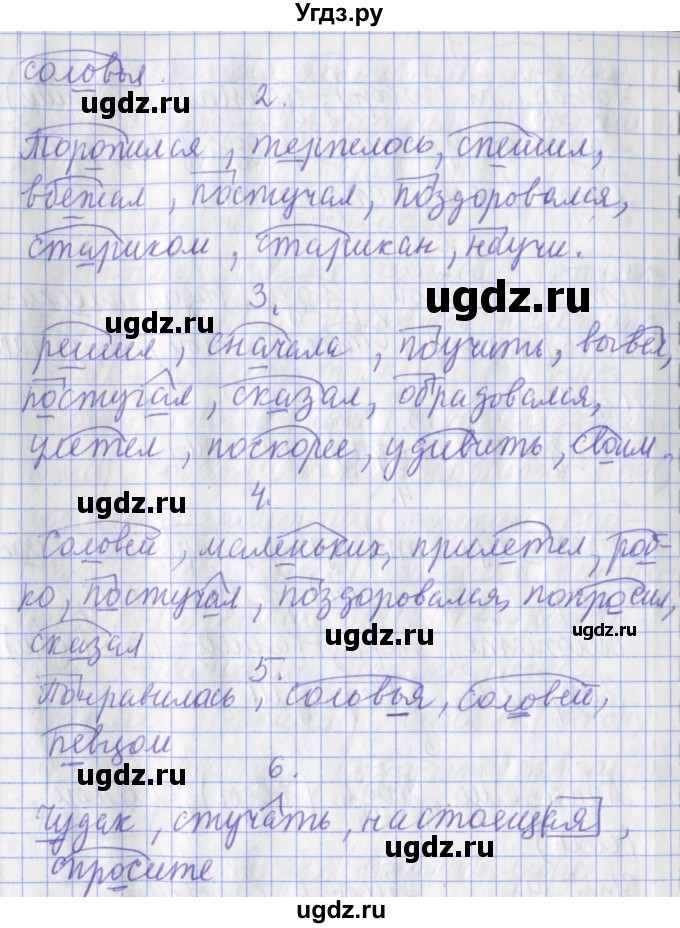 Угдз.ру
соловья.
ugdz.ru
2.
Торопился, терпелось, спешил,
вбежал, постучал, поздоровался,
стариком, старикан, научи.
ugdz.ru
3.
ugdz.ru
решил, сначала, поучить, вывел,
постучал, сказал, обрадовался,
улетел, поскорее, удивить, своим.
ugdz.ru
4.
Соловей, маленьких, прилетел, роб-
ко, постучал, поздоровался, попросил,
ugdz.ru
ugdz.ru
сказал
5.
Понравилась, соловья, соловей,
певцом
ugdz.ru
6.
Чудак, стучать, настоящая,
ugdz.ru
спросите
ugdz.ru